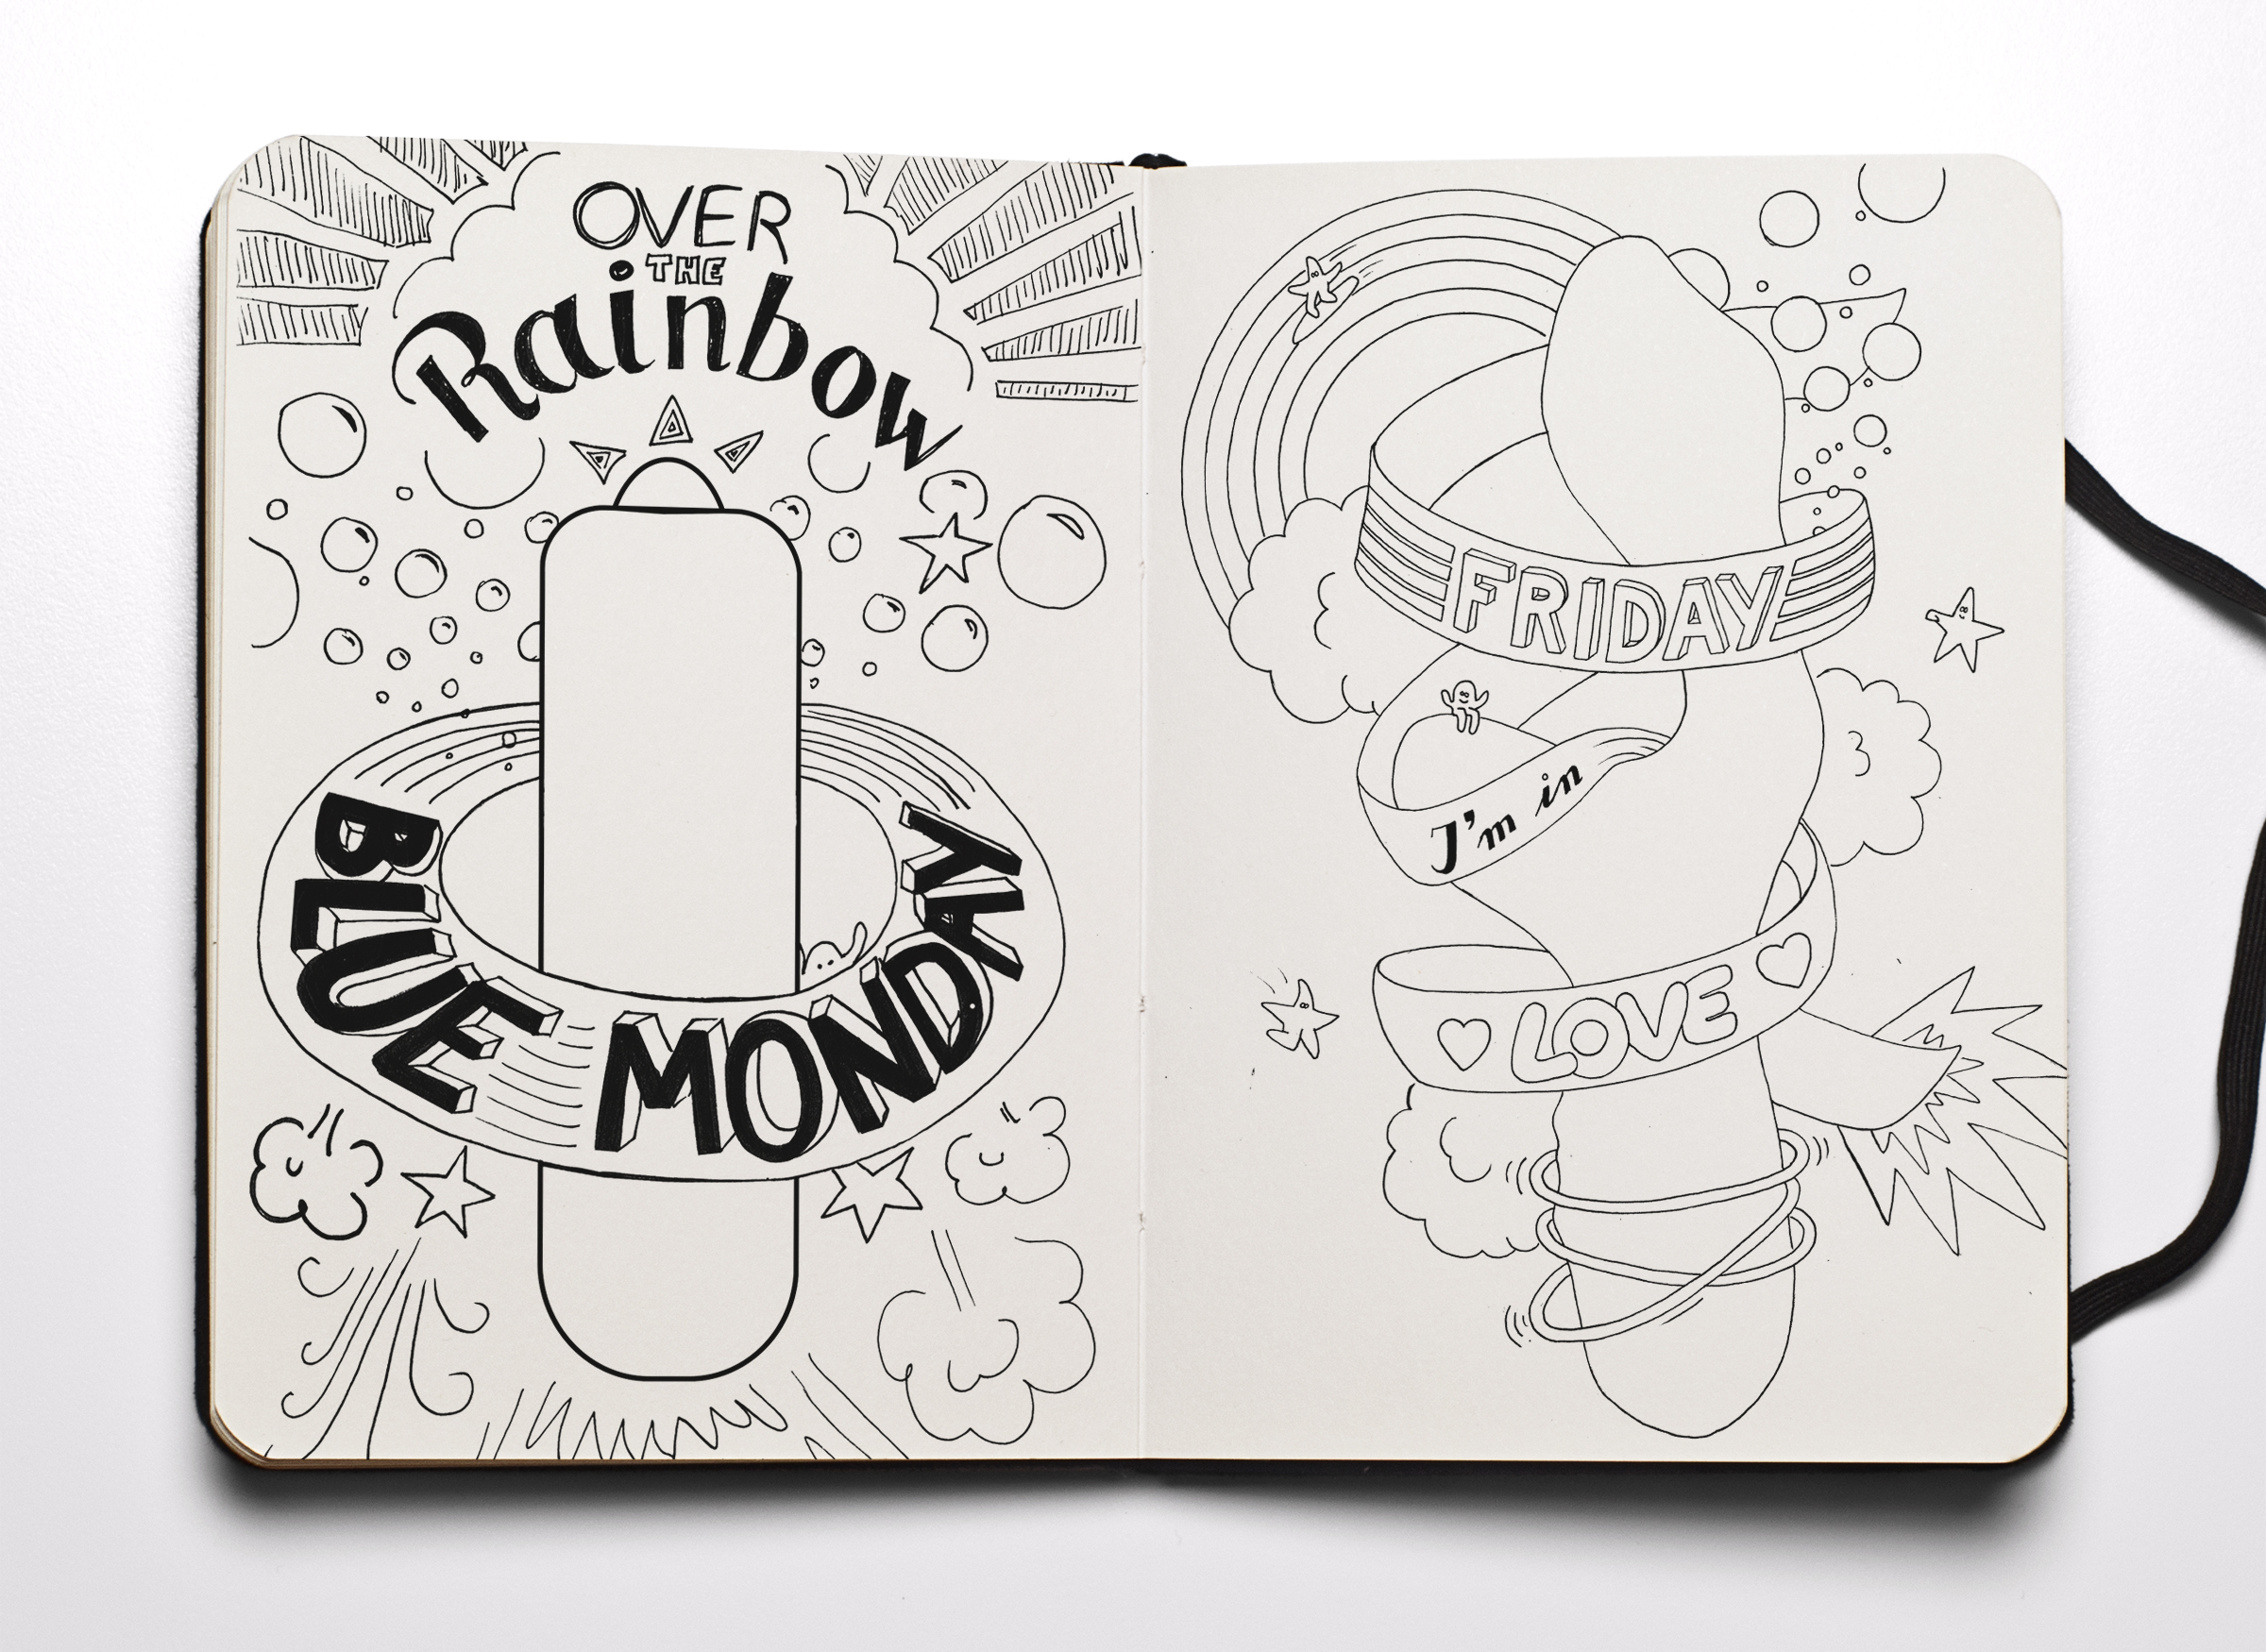 OVER
THE
Rainbow
BLUE MONDAY
FRIDAY
I'm in
LOVE